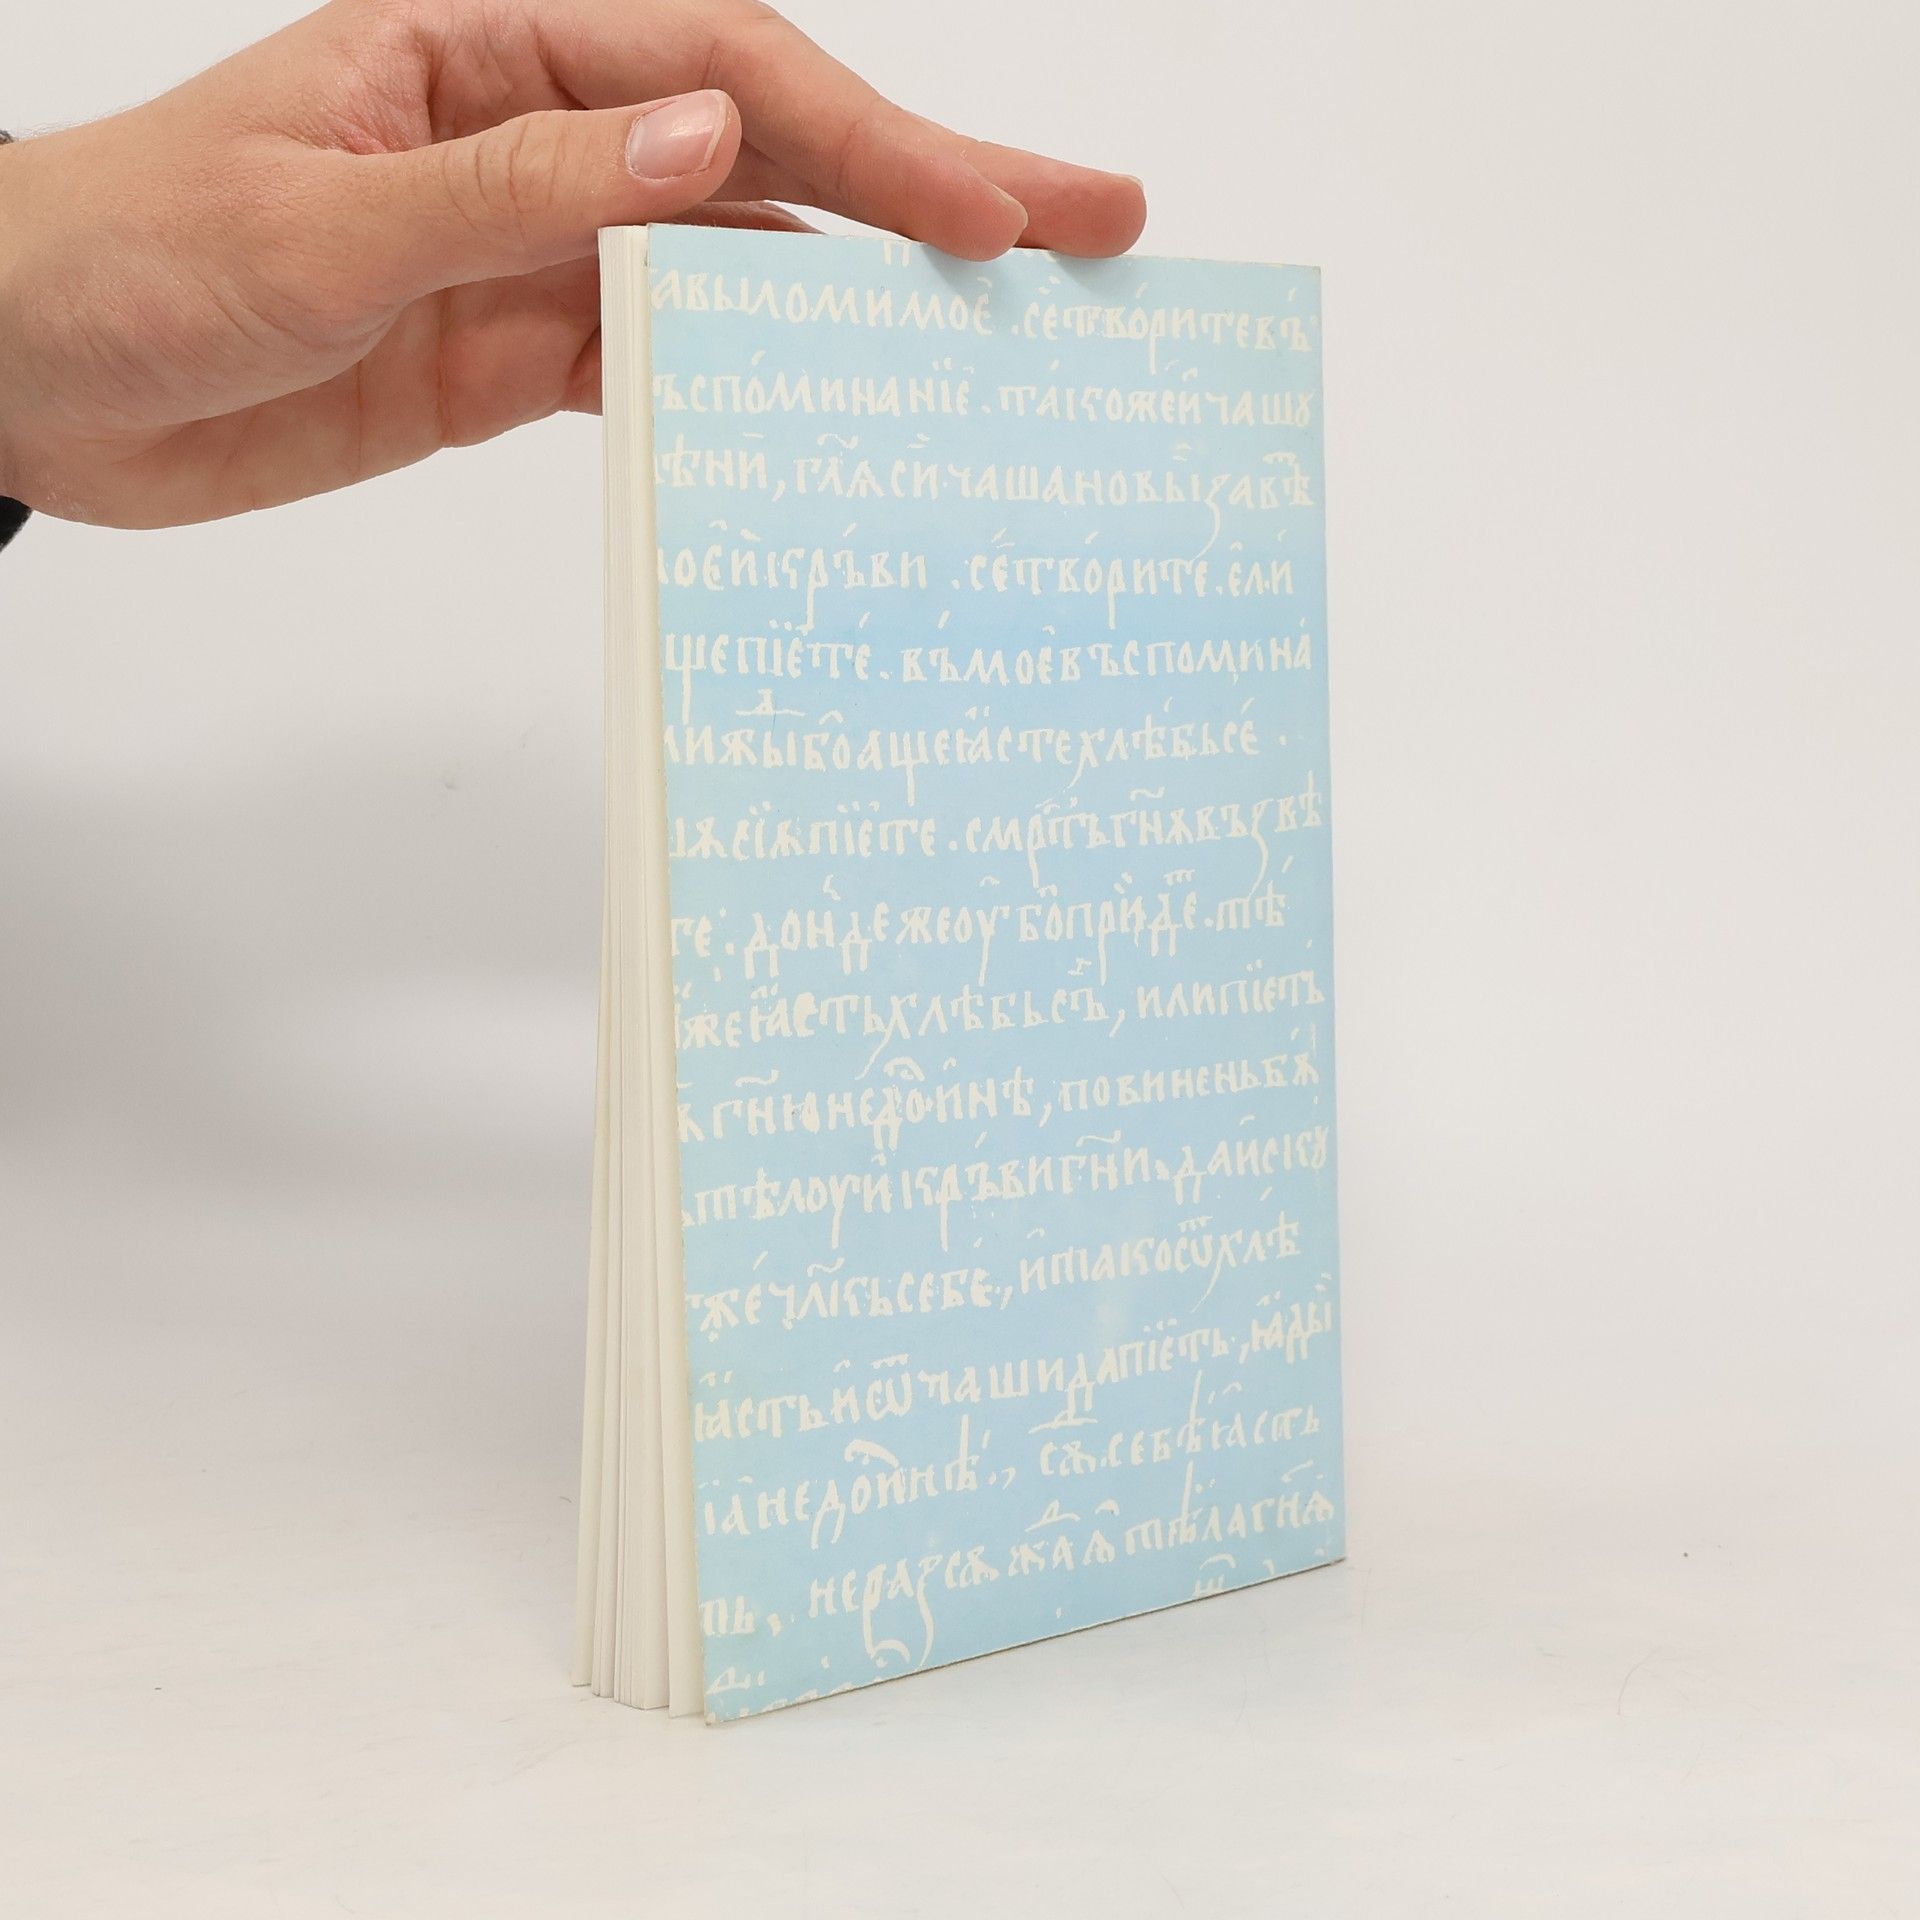 авыломимоѐ . сѐтво́ритевъ
ъспо́минанїе . та́кожеи҆чашꙋ
ѣнѝ, гл҃ѧсѝ чашановы́ꙁавѣ
оѐи҆кръ́ви . сѐтво́рите . ѐли́
щепїе́те . въ́моѐвъспомина́
лижⷣыбо҆ащеꙗ҆стехлѣ́бьсѐ .
шѫсїѫпїете . смрт҃ъгн҃ѫвъꙁвѣ
те : дон́дежеоу҆бо҆прїи҆де . тѣ́
жеꙗ҆стьхлѣбьсъ, илипїетъ
гн҃юнедо́и҆нѣ, повиненьбѫ
тѣлоуи҆кръ́вигн҃и . даи҆скꙋ
же́чл҃кьсебѐ, и҆такоѿхлѣ
ꙗ҆стьи҆ѿчашидапїеть, ꙗ҆ды́
ꙗ҆недои҆нѣ, сѫⷣсебѣꙗ҆сть
ть, нераꙁсѫжⷣаѧ҆тѣлагн҃ѧ